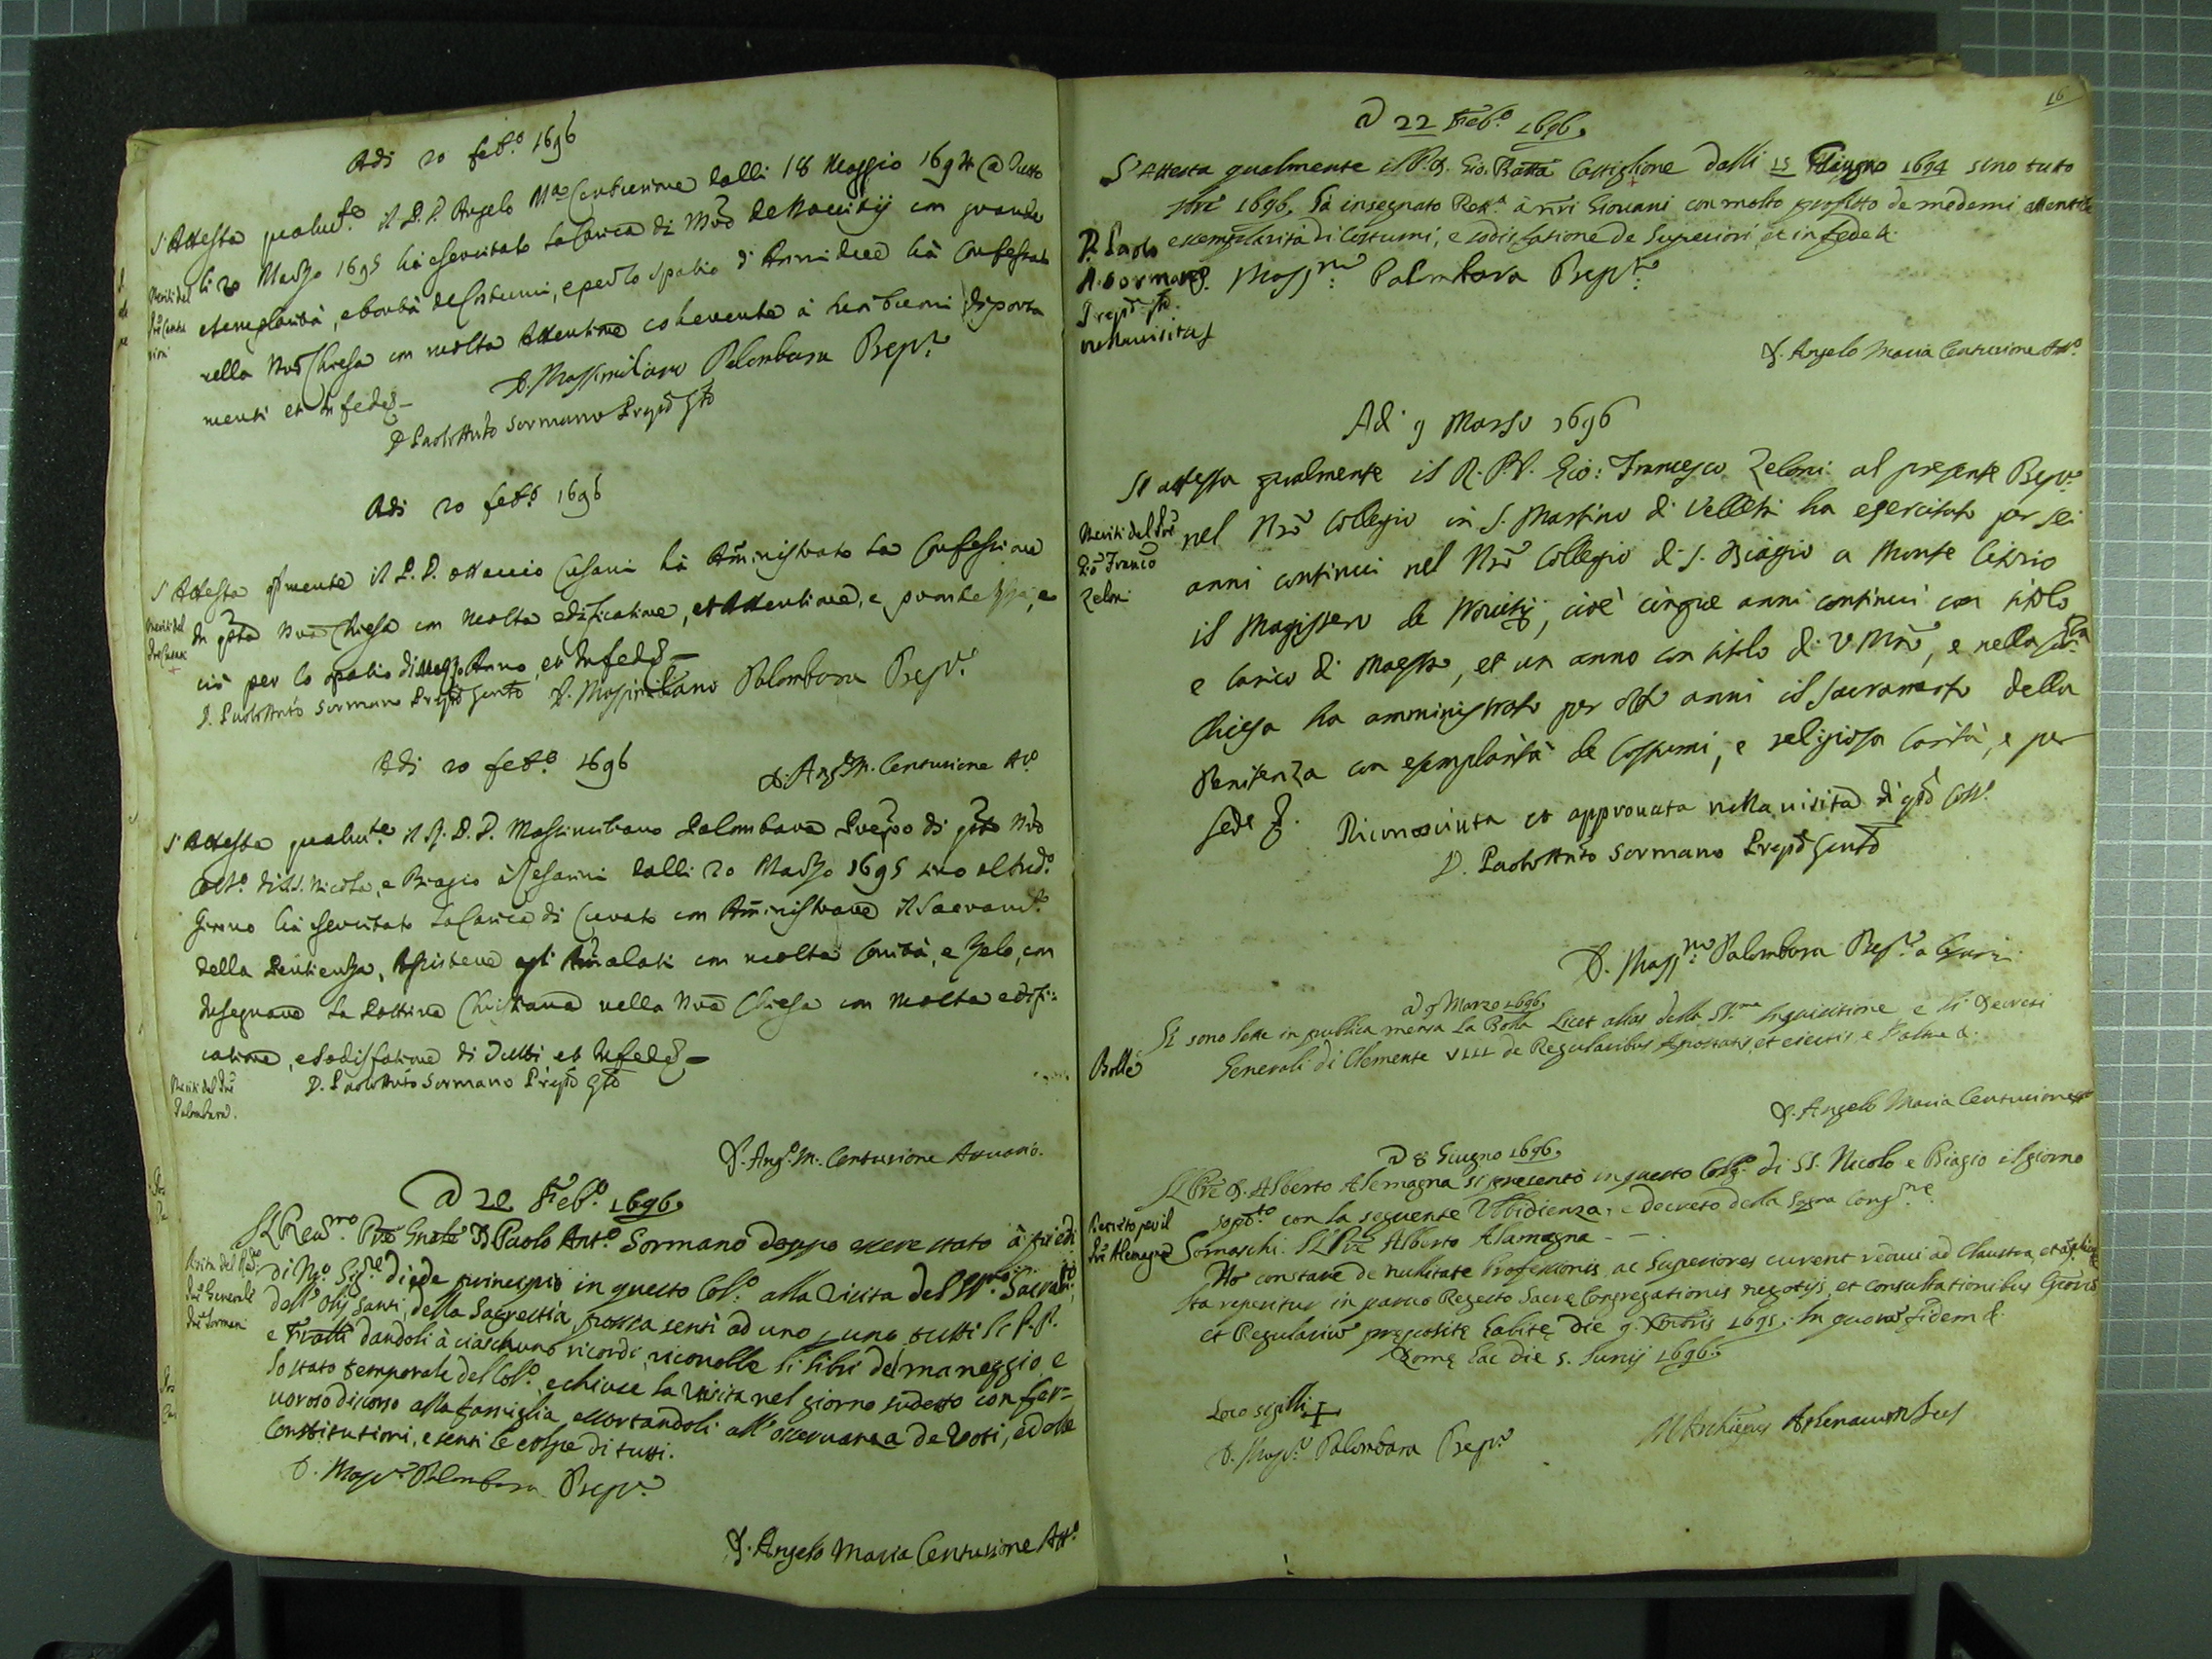 Adi 20 feb.o 1696
S'Attesta qualm.te il P. D. Angelo M.a Centurione dalli 18 Maggio 1694 a tutto
li 20 Marzo 1695 hà esercitato la Carica di Mro de Novitij con grande
esemplarità, e bontà de Costumi, e per lo spatio d'Anni dieci hà Confessato
nella nrã Chiesa con molta Attentione coherente à suoi buoni diporta
menti et in fede &
Meriti del
Prê Centu
rioni
D. Massimiliano Palombara Prep.to
D Paolo Antõ Sormano Prepõ Gñle
Adi 20 feb.o 1696
S'Attesta qlmente il P. D. Ottavio Cusani hà Amministrato la Confessione
in qsta nrã Chiesa con molta edificatione, et Attentione, e prontezza, e
ciò per lo spatio di mezzo Anno, et in fede &
Meriti del
Prê Cusani
D. Paolo Antõ Sormano Prepõ Gen.le D. Massimiliano Palombara Prep.to
Adi 20 feb.o 1696
D. Ang.o M. Centurione Att.o
S'Attesta qualm.te il P. D. Massimiliano Palombara Prepõ di qsto nrõ
Coll.o di SS. Nicola, e Biagio à Cesarini dalli 20 Marzo 1695 sino al sud.o
Giorno hà esercitato la Carica di Curato con Amministrare il Sacram.to
della Penitenza, Assistere agli Amalati con molta Carità, e Zelo, con
Insegnare la Dottrina Christiana nella nrã Chiesa con molta edifi=
catione, e Sodisfatione di Tutti et in fede &
D. Paolo Antõ Sormano Prepõ Gñle
Meriti del Prê
Palombara.
D. Ang.o M. Centurione Attuario.
A 22 Feb.o 1696.
Il Rev.mo Prê Gnãle D Paolo Ant.o Sormano doppo essere stato à piedi
di N.o Sig.re diede principio in questo Col.o alla Visita del SS.mo Sacram.to,
dell'Olij Santi, della Sagrestia, poscia sentì ad uno p uno tutti li P.P.
e Fratelli dandoli à ciascheduno ricordi, riconobbe li libri del maneggio e
lo stato temporale del Col.o, e chiuse la Visita nel giorno sudetto con fer=
voroso discorso alla famiglia, essortandoli all'osservanza de Voti, ed alle
Constitutioni, e sentì le colpe di tutti.
Visita del R.mo
Prê Generale
Prê Sormani
D. Mass.no Palombara Prep.to
D. Angelo Maria Centurione Att.o
16
A 22 Feb.o 1696.
S'Attesta qualmente il P. D. Gio. Batta Castiglione dalli 15 Giugno 1694 sino tutto
1696, hà insegnato Rett.a à nrı Giovani con molto profitto de medemi attentione
essemplarità di Costumi, e sodisfatione de Superiori, et in fede &
D. Paolo
A. Sormano
Prepõ Gñle
nella visita
D. Mass.no Palombara Prep.to
D. Angelo Maria Centurione Att.o
Adi 9 Marzo 1696
Si attesta qualmente il R. P. D. Gio: Francesco Zeloni al presente Prep.to
nel Nrõ Collegio in S. Martino di Velletri ha esercitato per sei
anni continui nel Nrõ Collegio di S. Biagio a Monte Citorio
il Magistero de Novitij, cioè cinque anni continui con titolo
e carico di Maestro, et un anno con titolo di V. Mrõ, e nella stessa
Chiesa ha amministrato per otto anni il Sacramento della
Penitenza con esemplarità de Costumi, e religiosa Carità, e per
fede &.
Meriti del Prê
Giõ Francõ
Zeloni
Riconosciuta et approvata nella visita di qstõ Coll.o
D. Paolo Antõ Sormano Prepõ Gen.le
D. Mass.no Palombara Prep.to
A 9 Marzo 1696.
Si sono lette in publica mensa la Bolla Licet alias della SS.ma Inquisitione e li Decreti
Generali di Clemente VIII de Regularibus Apostatis, et eiectis, e l'altre &.
Bolle
D. Angelo Maria Centurione Att.o
A 8 Giugno 1696.
Il Prê D. Alberto Alemagna si presentò in questo Coll.o di SS. Nicolo e Biagio il giorno
sop.to con la seguente Ubbidienza, e Decreto della Sagra Cong.ne
Somaschi. Il Prê Alberto Alamagna - -
Decreto per il
Prê Alemagna
No constare de nullitate Professionis, ac Superiores curent redui ad Claustra, et
Ita reperitur in parvo Regesto Sacrę Congregationis negotijs, et consultationibus
et Regulariũ prępositę habitę die 9. Xmbris 1695. In quorũ fidem &
Romę hac die 5. Iunij 1696.
Loco sigilli +
D. Mass.no Palombara Prep.to